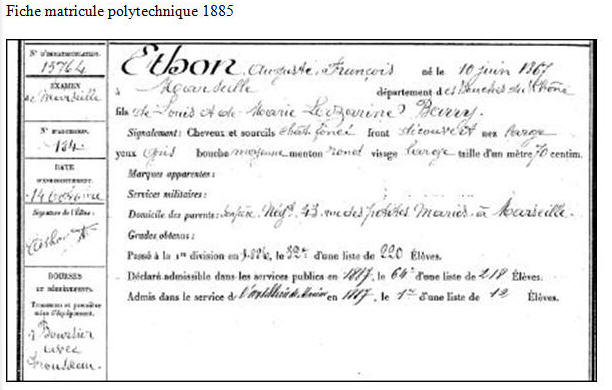 Fiche matricule polytechnique 1885
N° D'IMMATRICULATION.
13764
EXAMEN
de Marseille
N° D'ADMISSION.
134
DATE
D'ENREGISTREMENT.
14 octobre
Signature de l'Élève.
Ethon A
BOURSES
ET DÉGRÈVEMENTS.
Trousseau et première
mise d'équipement.
Boursier
avec
trousseau.
Ethon, Auguste, François né le 10 juin 1867
à Marseille département des Bouches du Rhône
fils de Louis et de Marie Barry
Signalement: Cheveux et sourcils chât foncé front découvert nez large
yeux gris bouche moyenne menton rond visage large taille d'un mètre 70 centim.
Marques apparentes:
Services militaires:
Domicile des parents: Négt 43 rue des petites Maries à Marseille.
Grades obtenus:
Passé à la 1re division en 1886, le 32e d'une liste de 220 Élèves.
Déclaré admissible dans les services publics en 1887, le 64e d'une liste de 218 Élèves.
Admis dans le service de l'artillerie de Marine en 1887, le 1er d'une liste de 12 Élèves.